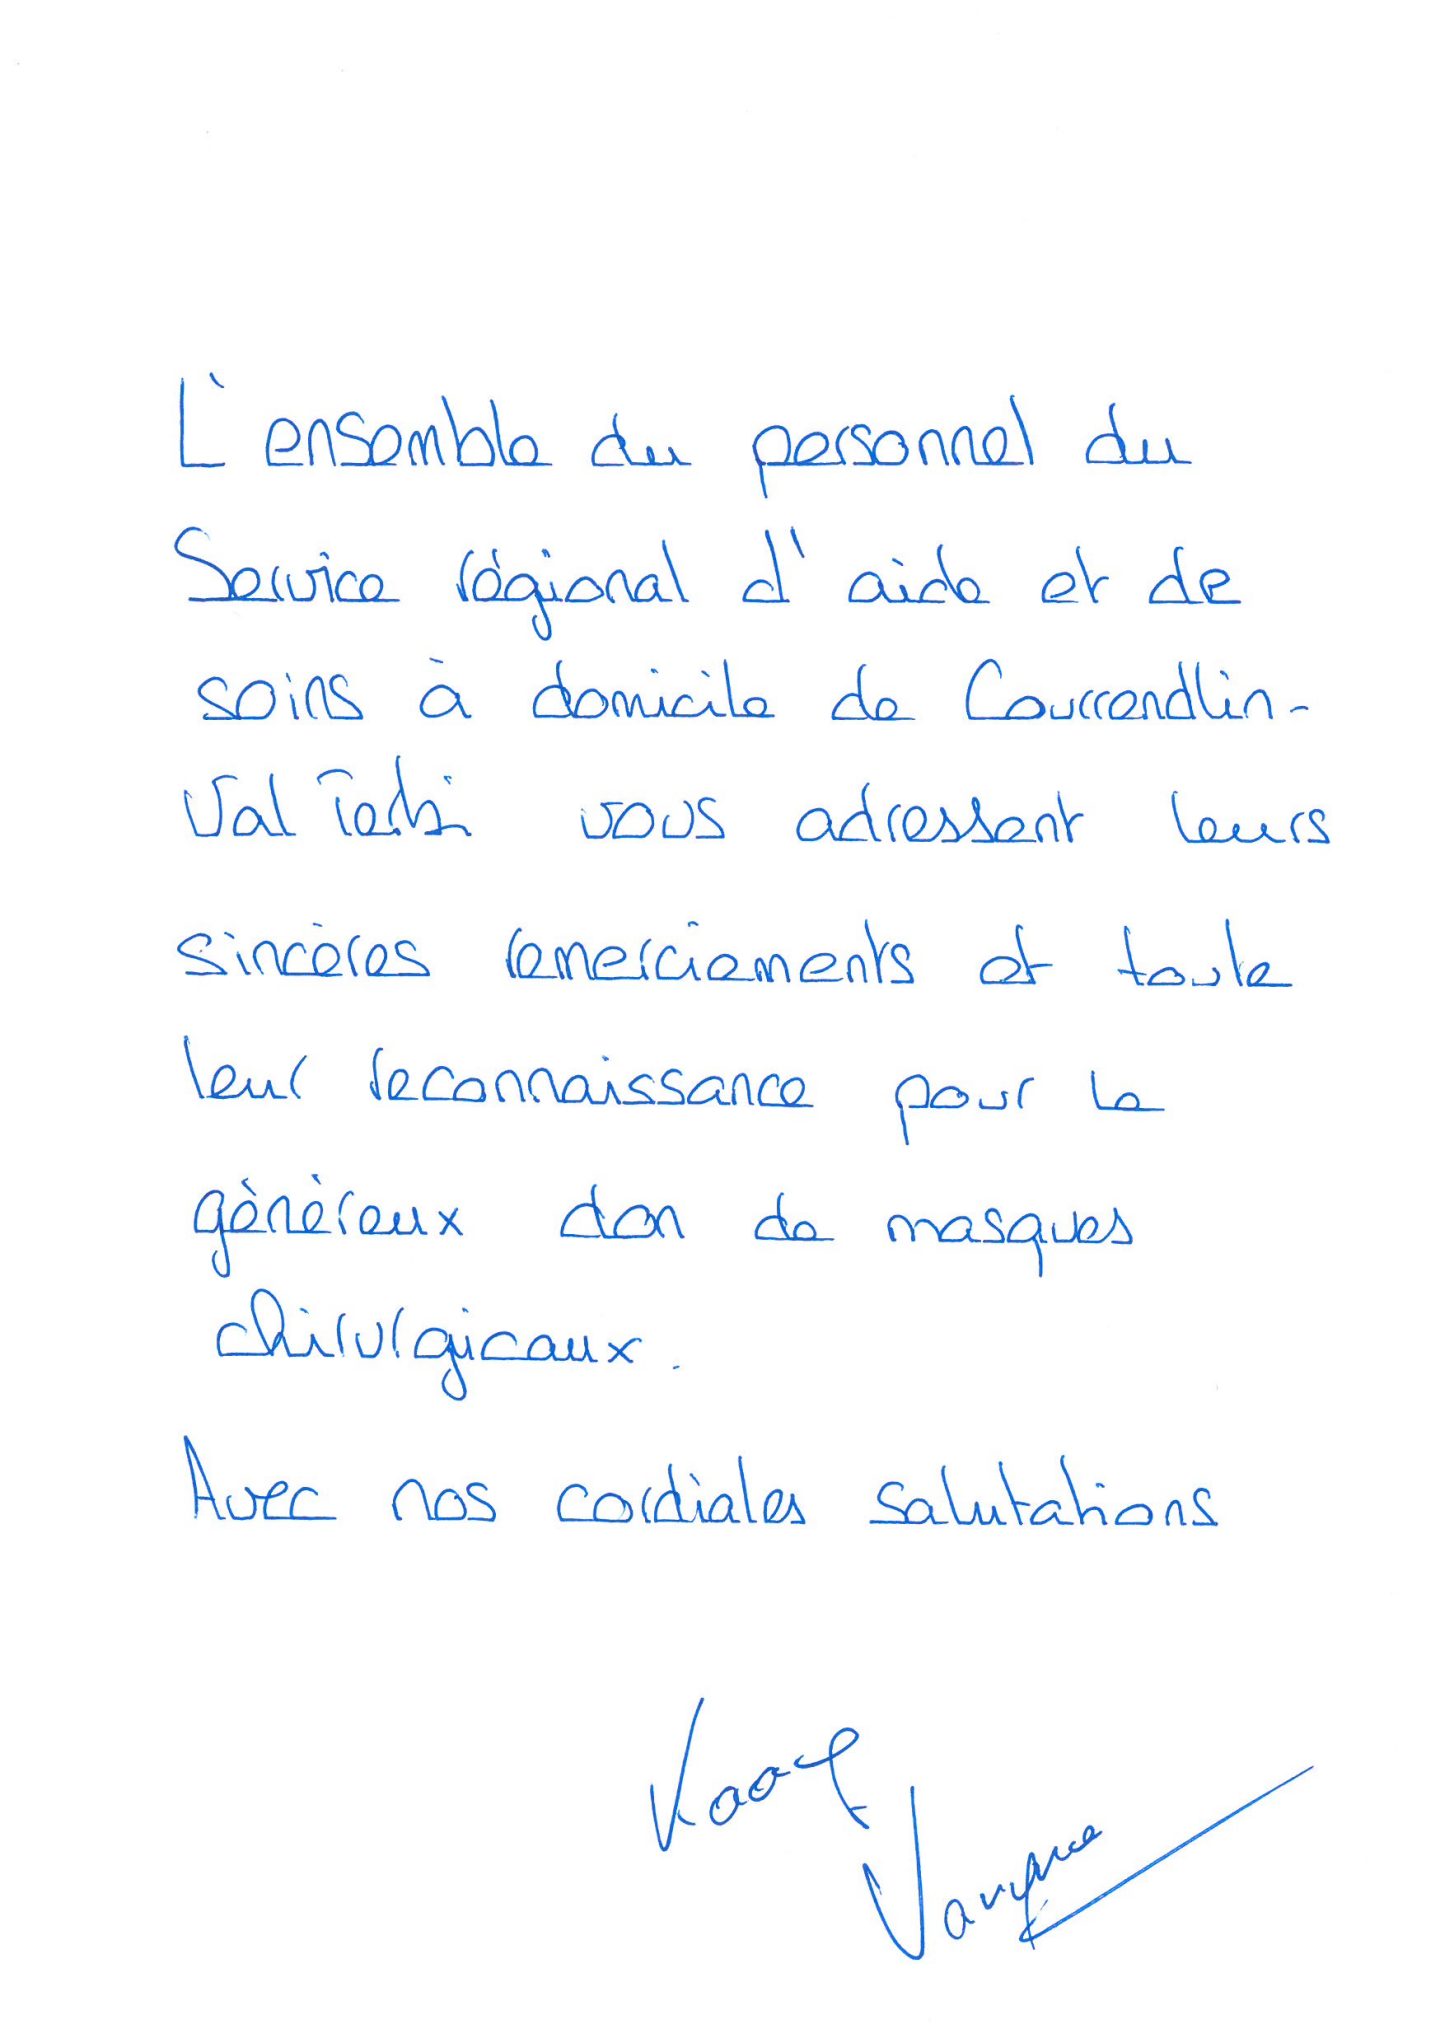 L'ensemble du personnel du
Service régional d'aide et de
soins à domicile de Courrendlin-
Val Terbi vous adressent leurs
sincères remerciements et toute
leur reconnaissance pour le
généreux don de masques
chirurgicaux.
Avec nos cordiales salutations